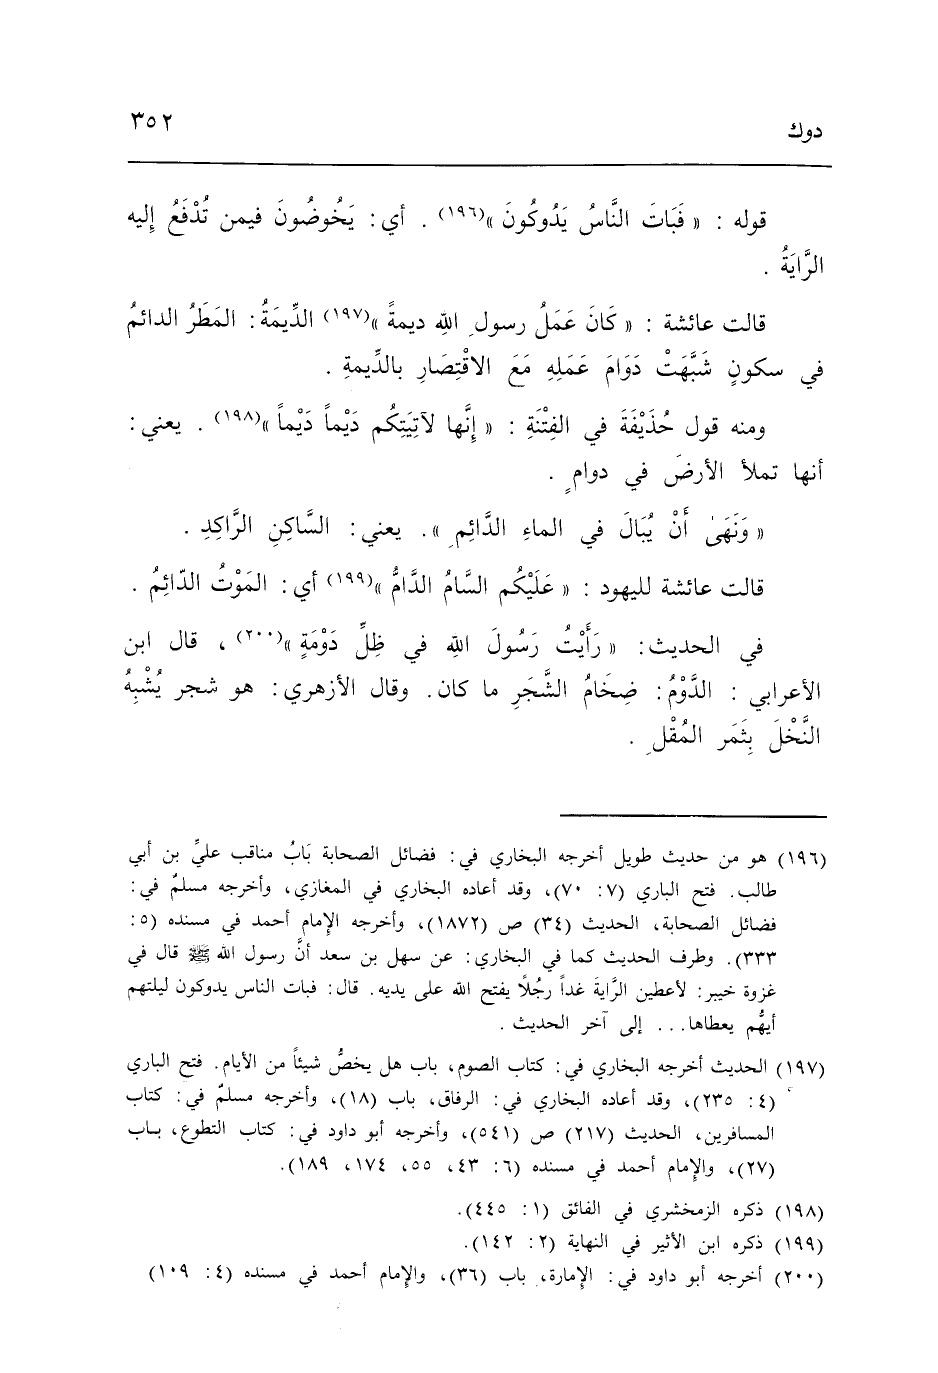 دوك ٣٥٢
قوله : « فَبَاتَ النَّاسُ يَدُوكُونَ »(١٩٦) . أي: يَخُوضُونَ فيمن تُدْفَعُ إِليه
الرَّايَةُ .
قالت عائشة : « كَانَ عَمَلُ رسولِ اللهِ ديمةً »(١٩٧) الدِّيمَةُ: المَطَرُ الدائمُ
في سكونٍ شَبَّهَتْ دَوَامَ عَمَلِهِ مَعَ الاقْتِصَارِ بالدِّيمةِ .
ومنه قول حُذَيْفَةَ في الفِتْنَةِ : « إِنَّها لآتِيَتِكُم دَيْماً دَيْماً »(١٩٨) . يعني:
أنها تملأ الأرضَ في دوامٍ .
« وَنَهَىٰ أَنْ يُبَالَ في الماءِ الدَّائِمِ ». يعني: السَّاكِنِ الرَّاكِدِ .
قالت عائشة لليهود : « عَلَيْكُم السَّامُ الدَّامُّ »(١٩٩) أي: المَوْتُ الدّائِمُ .
في الحديث: « رَأَيْتُ رَسُولَ اللهِ في ظِلِّ دَوْمَةٍ »(٢٠٠) ، قال ابن
الأعرابي : الدَّوْمُ: ضِخَامُ الشَّجَرِ ما كان. وقال الأزهري: هو شجر يُشْبِهُ
النَّخْلَ بِثَمَر المُقْلِ .
(١٩٦) هو من حديث طويل أخرجه البخاري في: فضائل الصحابة بَابُ مناقب عليِّ بن أبي
طالب. فتح الباري (٧: ٧٠)، وقد أعاده البخاري في المغازي، وأخرجه مسلمٌ في:
فضائل الصحابة، الحديث (٣٤) ص (١٨٧٢)، وأخرجه الإمام أحمد في مسنده (٥:
٣٣٣). وطرف الحديث كما في البخاري: عن سهل بن سعد أنَّ رسول الله ﷺ قال في
غزوة خيبر: لأعطين الرَّايةَ غداً رجُلًا يفتح الله على يديه. قال: فبات الناس يدوكون ليلتهم
أيهُّم يعطاها... إلى آخر الحديث .
(١٩٧) الحديث أخرجه البخاري في: كتاب الصوم، باب هل يخصُّ شيئاً من الأيام. فتح الباري
(٤: ٢٣٥)، وقد أعاده البخاري في: الرفاق، باب (١٨)، وأخرجه مسلمٌ في: كتاب
المسافرين، الحديث (٢١٧) ص (٥٤١)، وأخرجه أبو داود في: كتاب التطوع، باب
(٢٧)، والإمام أحمد في مسنده (٦: ٤٣، ٥٥، ١٧٤، ١٨٩).
(١٩٨) ذكره الزمخشري في الفائق (١: ٤٤٥).
(١٩٩) ذكره ابن الأثير في النهاية (٢: ١٤٢).
(٢٠٠) أخرجه أبو داود في: الإمارة، باب (٣٦)، والإمام أحمد في مسنده (٤: ١٠٩)